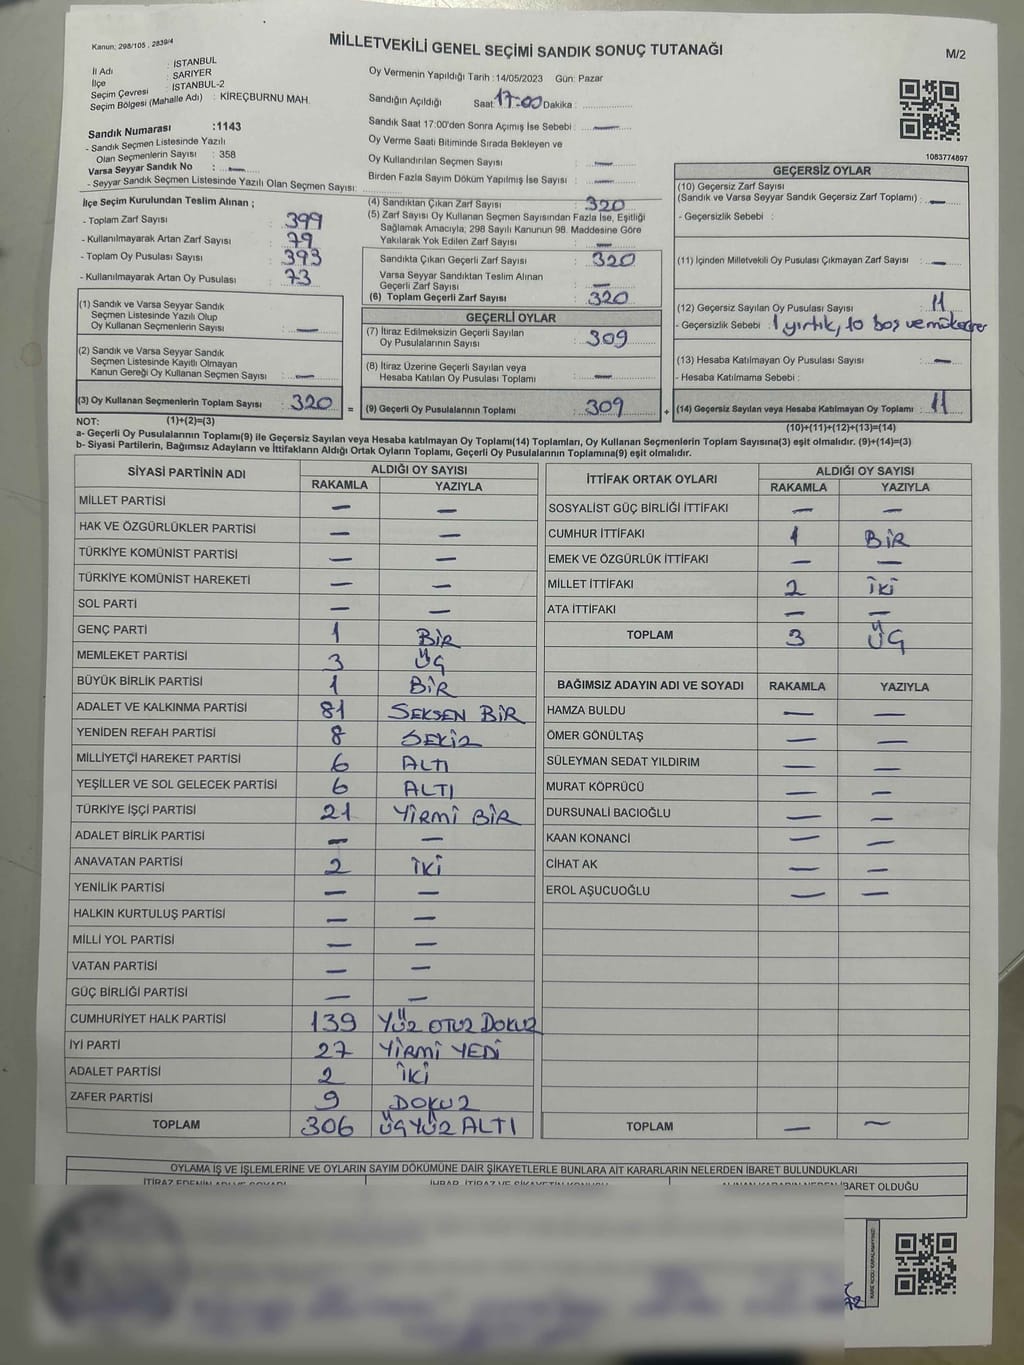 Kanun: 298/105 , 2839/4
MİLLETVEKİLİ GENEL SEÇİMİ SANDIK SONUÇ TUTANAĞI
M/2
İl Adı : İSTANBUL
İlçe : SARIYER
Seçim Çevresi : İSTANBUL-2
Seçim Bölgesi (Mahalle Adı) : KİREÇBURNU MAH.
Oy Vermenin Yapıldığı Tarih :14/05/2023 Gün: Pazar
Sandığın Açıldığı Saat: 17:00 Dakika :
Sandık Saat 17:00'den Sonra Açımış İse Sebebi : —
Oy Verme Saati Bitiminde Sırada Bekleyen ve
Oy Kullandırılan Seçmen Sayısı : —
Birden Fazla Sayım Döküm Yapılmış İse Sayısı : —
1083774897
Sandık Numarası :1143
- Sandık Seçmen Listesinde Yazılı
Olan Seçmenlerin Sayısı : 358
Varsa Seyyar Sandık No : —
- Seyyar Sandık Seçmen Listesinde Yazılı Olan Seçmen Sayısı:
İlçe Seçim Kurulundan Teslim Alınan ;
- Toplam Zarf Sayısı : 399
- Kullanılmayarak Artan Zarf Sayısı : 79
- Toplam Oy Pusulası Sayısı : 393
- Kullanılmayarak Artan Oy Pusulası : 73
(1) Sandık ve Varsa Seyyar Sandık
Seçmen Listesinde Yazılı Olup
Oy Kullanan Seçmenlerin Sayısı : —
(2) Sandık ve Varsa Seyyar Sandık
Seçmen Listesinde Kayıtlı Olmayan
Kanun Gereği Oy Kullanan Seçmen Sayısı : —
(3) Oy Kullanan Seçmenlerin Toplam Sayısı : 320 =
(4) Sandıktan Çıkan Zarf Sayısı : 320
(5) Zarf Sayısı Oy Kullanan Seçmen Sayısından Fazla İse, Eşitliği
Sağlamak Amacıyla, 298 Sayılı Kanunun 98. Maddesine Göre
Yakılarak Yok Edilen Zarf Sayısı : —
Sandıkta Çıkan Geçerli Zarf Sayısı : 320
Varsa Seyyar Sandıktan Teslim Alınan
Geçerli Zarf Sayısı : —
(6) Toplam Geçerli Zarf Sayısı : 320
GEÇERLİ OYLAR
(7) İtiraz Edilmeksizin Geçerli Sayılan
Oy Pusulalarının Sayısı : 309
(8) İtiraz Üzerine Geçerli Sayılan veya
Hesaba Katılan Oy Pusulası Toplamı : —
(9) Geçerli Oy Pusulalarının Toplamı : 309 +
GEÇERSİZ OYLAR
(10) Geçersiz Zarf Sayısı
(Sandık ve Varsa Seyyar Sandık Geçersiz Zarf Toplamı) : —
- Geçersizlik Sebebi :
(11) İçinden Milletvekili Oy Pusulası Çıkmayan Zarf Sayısı : —
(12) Geçersiz Sayılan Oy Pusulası Sayısı : 11
- Geçersizlik Sebebi : 1 yırtık, 10 boş ve mükerrer
(13) Hesaba Katılmayan Oy Pusulası Sayısı : —
- Hesaba Katılmama Sebebi :
(14) Geçersiz Sayılan veya Hesaba Katılmayan Oy Toplamı : 11
NOT: (1)+(2)=(3)
(10)+(11)+(12)+(13)=(14)
a- Geçerli Oy Pusulalarının Toplamı(9) ile Geçersiz Sayılan veya Hesaba katılmayan Oy Toplamı(14) Toplamları, Oy Kullanan Seçmenlerin Toplam Sayısına(3) eşit olmalıdır. (9)+(14)=(3)
b- Siyasi Partilerin, Bağımsız Adayların ve İttifakların Aldığı Ortak Oyların Toplamı, Geçerli Oy Pusulalarının Toplamına(9) eşit olmalıdır.
SİYASİ PARTİNİN ADI ALDIĞI OY SAYISI
RAKAMLA YAZIYLA
MİLLET PARTİSİ — —
HAK VE ÖZGÜRLÜKLER PARTİSİ — —
TÜRKİYE KOMÜNİST PARTİSİ — —
TÜRKİYE KOMÜNİST HAREKETİ — —
SOL PARTİ — —
GENÇ PARTİ 1 BİR
MEMLEKET PARTİSİ 3 ÜÇ
BÜYÜK BİRLİK PARTİSİ 1 BİR
ADALET VE KALKINMA PARTİSİ 81 SEKSEN BİR
YENİDEN REFAH PARTİSİ 8 SEKİZ
MİLLİYETÇİ HAREKET PARTİSİ 6 ALTI
YEŞİLLER VE SOL GELECEK PARTİSİ 6 ALTI
TÜRKİYE İŞÇİ PARTİSİ 21 YİRMİ BİR
ADALET BİRLİK PARTİSİ — —
ANAVATAN PARTİSİ 2 İKİ
YENİLİK PARTİSİ — —
HALKIN KURTULUŞ PARTİSİ — —
MİLLİ YOL PARTİSİ — —
VATAN PARTİSİ — —
GÜÇ BİRLİĞİ PARTİSİ — —
CUMHURİYET HALK PARTİSİ 139 YÜZ OTUZ DOKUZ
İYİ PARTİ 27 YİRMİ YEDİ
ADALET PARTİSİ 2 İKİ
ZAFER PARTİSİ 9 DOKUZ
TOPLAM 306 ÜÇYÜZ ALTI
İTTİFAK ORTAK OYLARI ALDIĞI OY SAYISI
RAKAMLA YAZIYLA
SOSYALİST GÜÇ BİRLİĞİ İTTİFAKI — —
CUMHUR İTTİFAKI 1 BİR
EMEK VE ÖZGÜRLÜK İTTİFAKI — —
MİLLET İTTİFAKI 2 İKİ
ATA İTTİFAKI — —
TOPLAM 3 ÜÇ
BAĞIMSIZ ADAYIN ADI VE SOYADI RAKAMLA YAZIYLA
HAMZA BULDU — —
ÖMER GÖNÜLTAŞ — —
SÜLEYMAN SEDAT YILDIRIM — —
MURAT KÖPRÜCÜ — —
DURSUNALİ BACIOĞLU — —
KAAN KONANCİ — —
CİHAT AK — —
EROL AŞUCUOĞLU — —
TOPLAM — —
OYLAMA İŞ VE İŞLEMLERİNE VE OYLARIN SAYIM DÖKÜMÜNE DAİR ŞİKAYETLERLE BUNLARA AİT KARARLARIN NELERDEN İBARET BULUNDUKLARI
İTİRAZ EDENİN ADI VE SOYADI İHBAR, İTİRAZ VE ŞİKAYETİN KONUSU ALINAN KARARIN NEDEN İBARET OLDUĞU